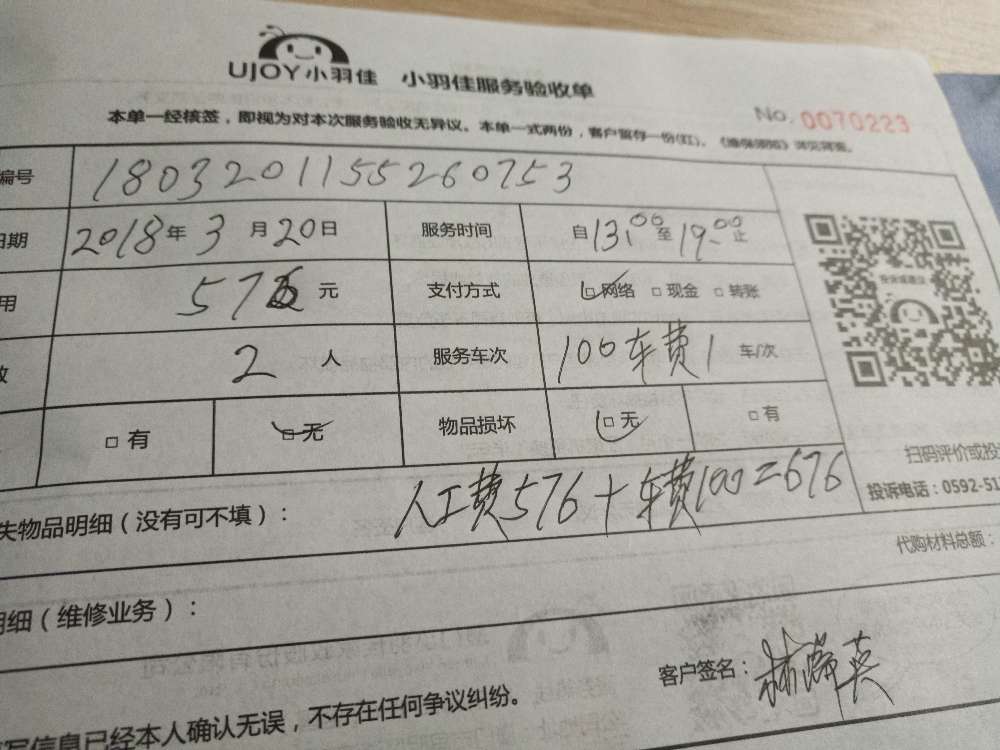 UJOY小羽佳 小羽佳服务验收单
No. 0070223
本单一经核签，即视为对本次服务验收无异议。本单一式两份，客户留存一份(红)。
编号 180320115526​0753
日期 2018年3月20日 服务时间 自13:00至19:00止
用 576元 支付方式 □网络 □现金 □转账
2人 服务车次 100车费1 车/次
□有 □无 物品损坏 □无 □有
扫码评价或投
失物品明细（没有可不填）： 人工费576+车费100=676 投诉电话：0592-51
代购材料总额：
明细（维修业务）：
客户签名：
写信息已经本人确认无误，不存在任何争议纠纷。